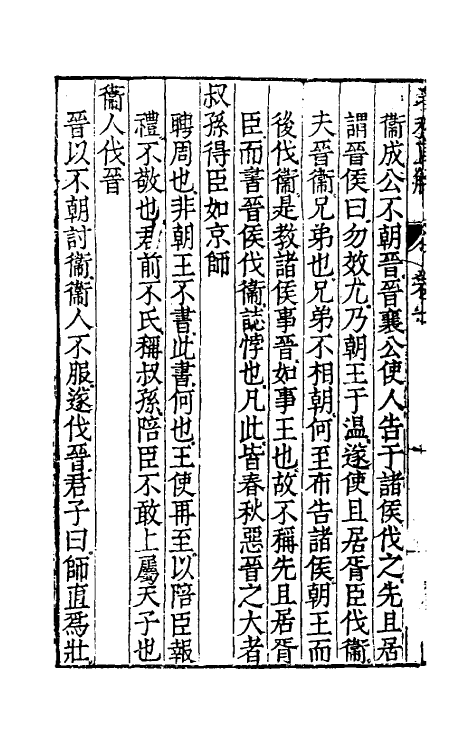 衞成公不朝晉晉襄公使人告于諸侯伐之先且居
謂晉侯曰勿效尤乃朝王于温遂使且居胥臣伐衞
夫晉衞兄弟也兄弟不相朝何至布告諸侯朝王而
後伐衞是教諸侯事晉如事王也故不稱先且居胥
臣而書晉侯伐衞誌悖也凡此皆春秋惡晉之大者
叔孫得臣如京師
聘周也非朝王不書此書何也王使再至以陪臣報
禮不敬也君前不氏稱叔孫陪臣不敢上屬天子也
衞人伐晉
晉以不朝討衞衞人不服遂伐晉君子曰師直爲壯